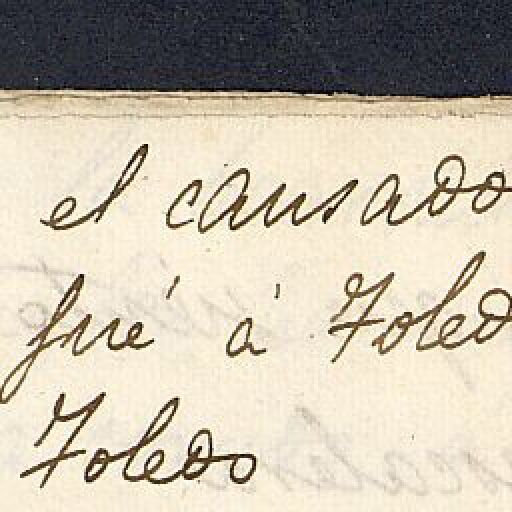 el causado
fué á Toled
Toledo